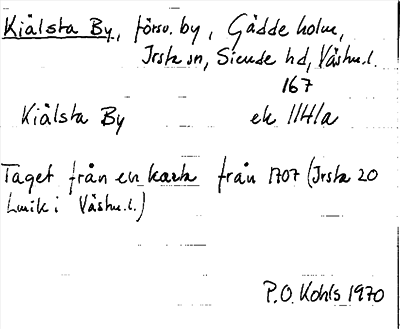 Kiälsta By, försv. by, Gäddeholm,
Irsta sn, Siende hd, Västm.l.
167
Kiälsta By ek 11H1a
Taget från en karta från 1707 (Irsta 20
Lmtk i Västm.l.)
P.O. Kohls 1970